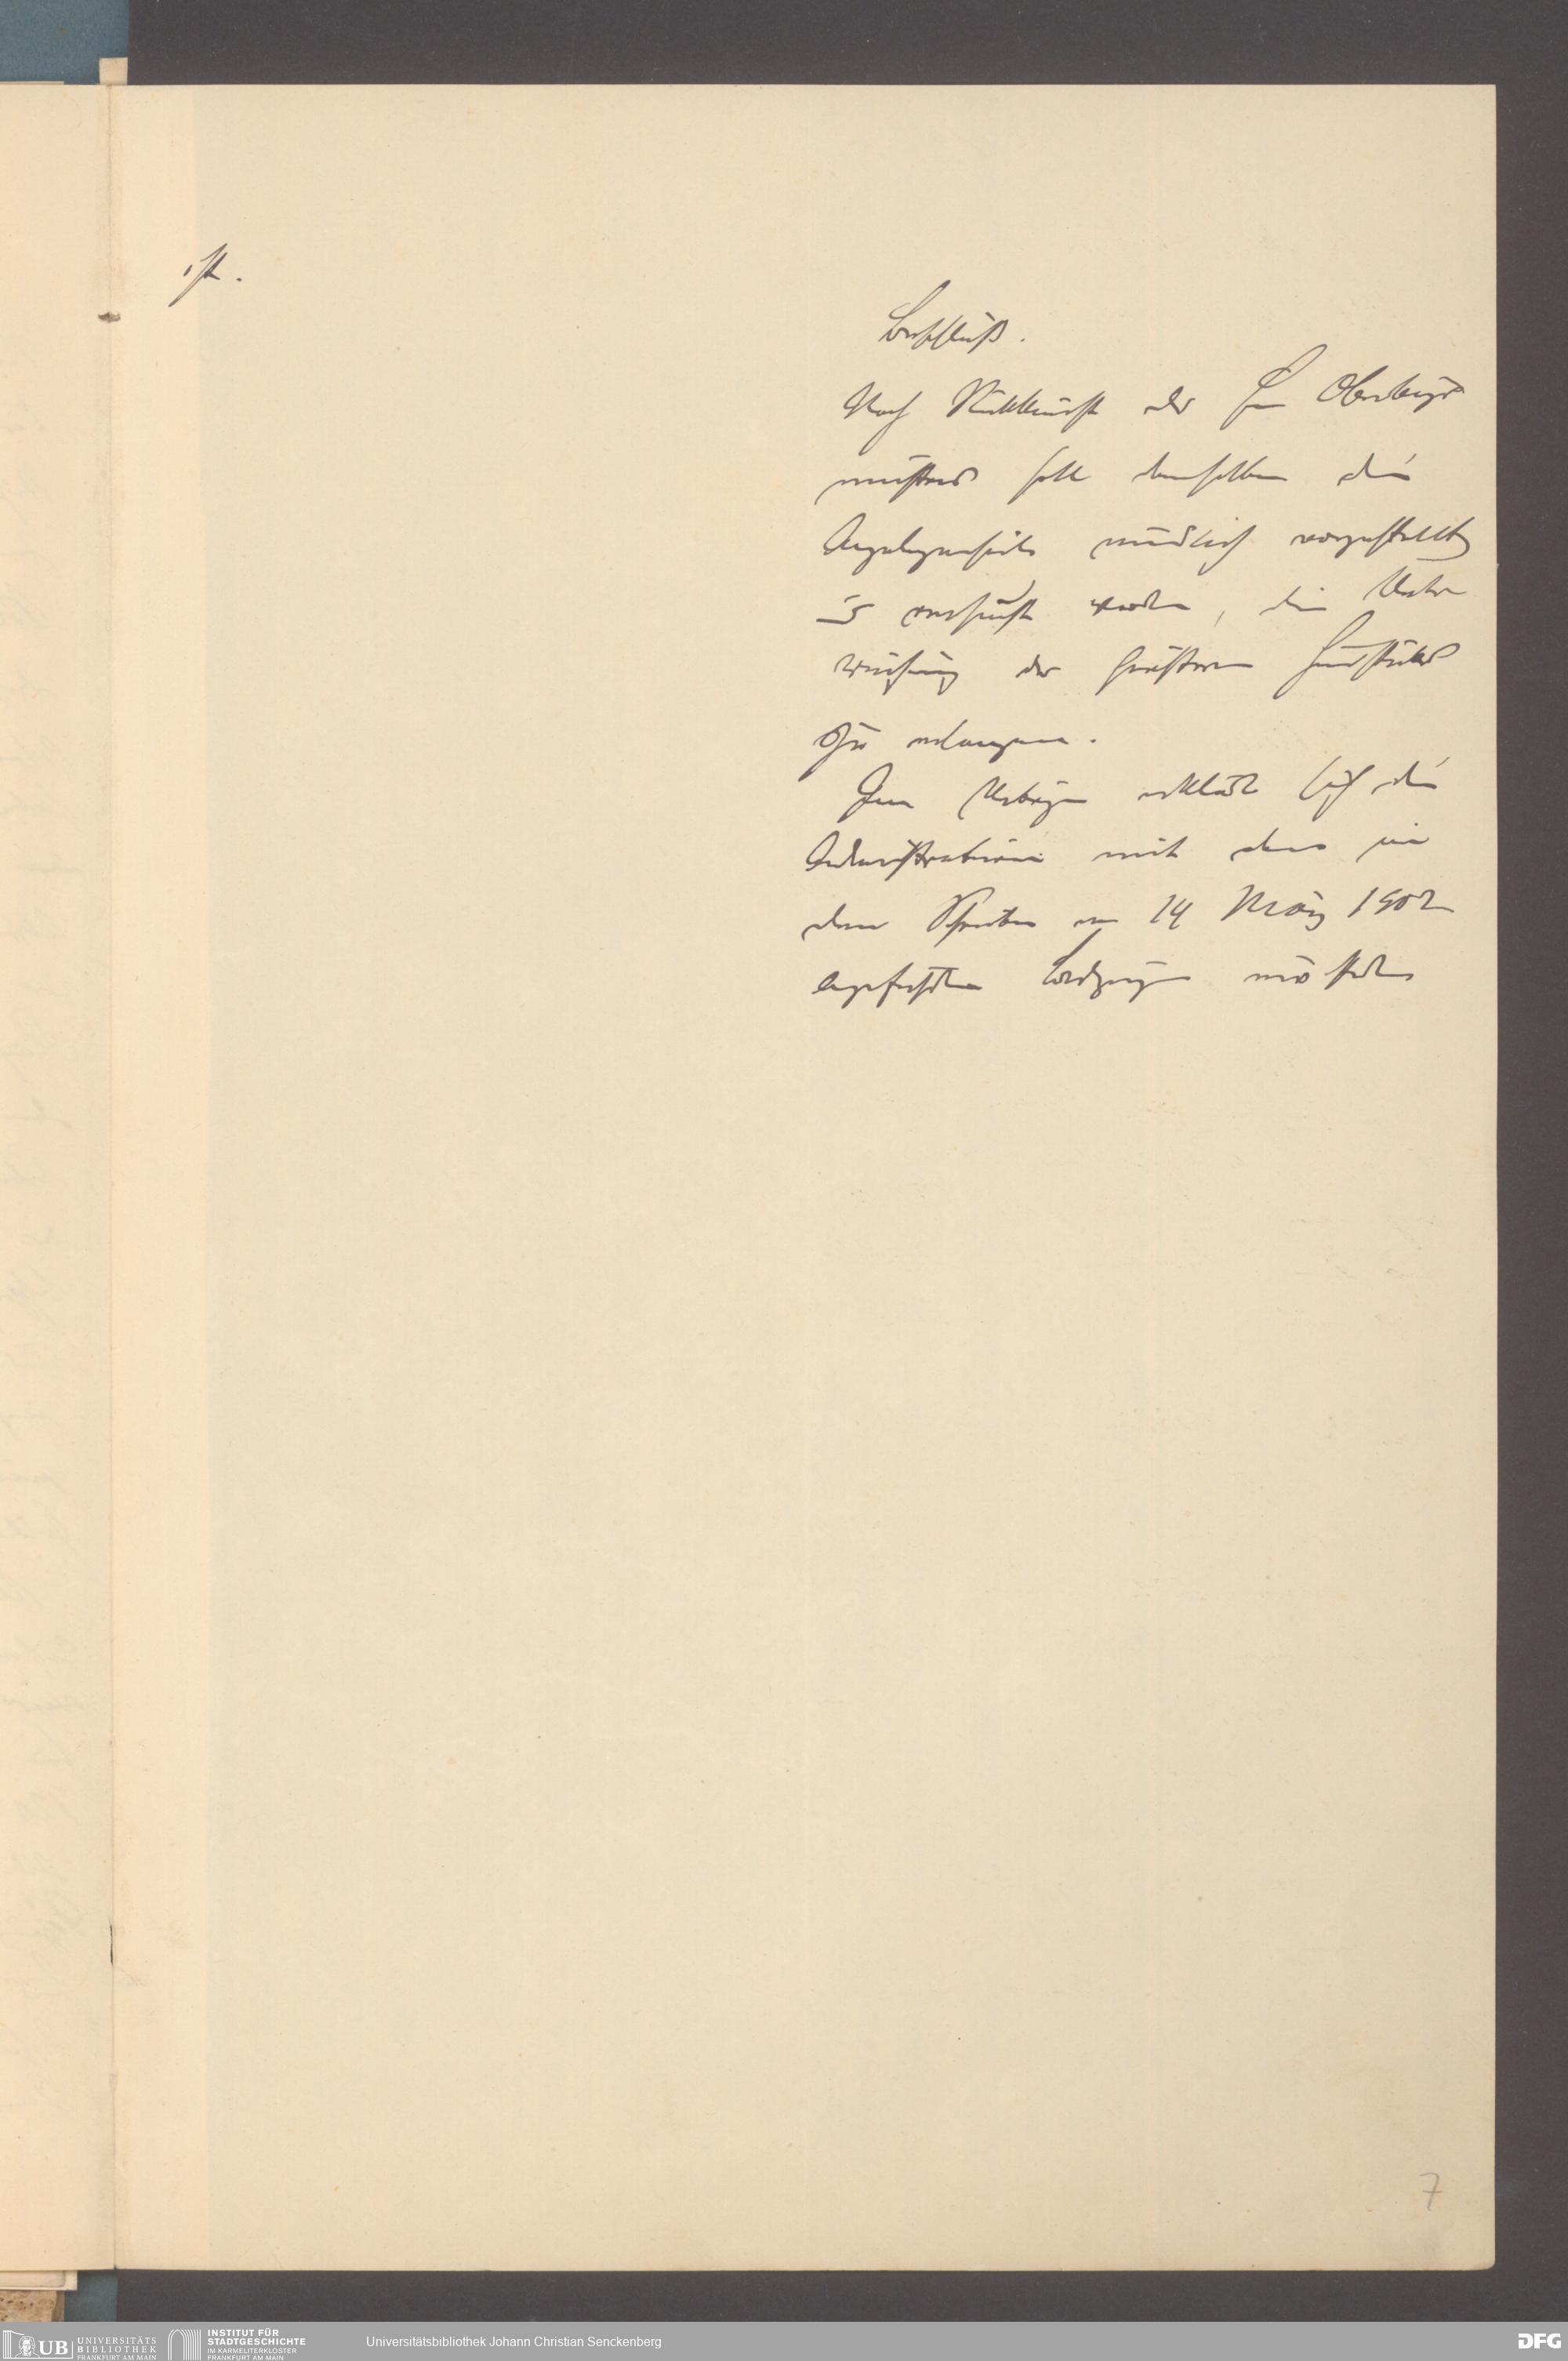 ist.
Beschluß.
Nach Rückkunft des Hrn Oberbürger
meisters soll demselben die
Angelegenheit mündlich vorgestellt
u versucht werden, die Ueber
weisung der Grundstücks
zu erlangen.
Im Uebrigen erklärt sich die
Administration mit den in
dem Schreiben vom 14 März 1902
angeführten Bedingungen einverstanden
7
UB UNIVERSITÄTS
BIBLIOTHEK
FRANKFURT AM MAIN
INSTITUT FÜR
STADTGESCHICHTE
IM KARMELITERKLOSTER
FRANKFURT AM MAIN
Universitätsbibliothek Johann Christian Senckenberg
DFG